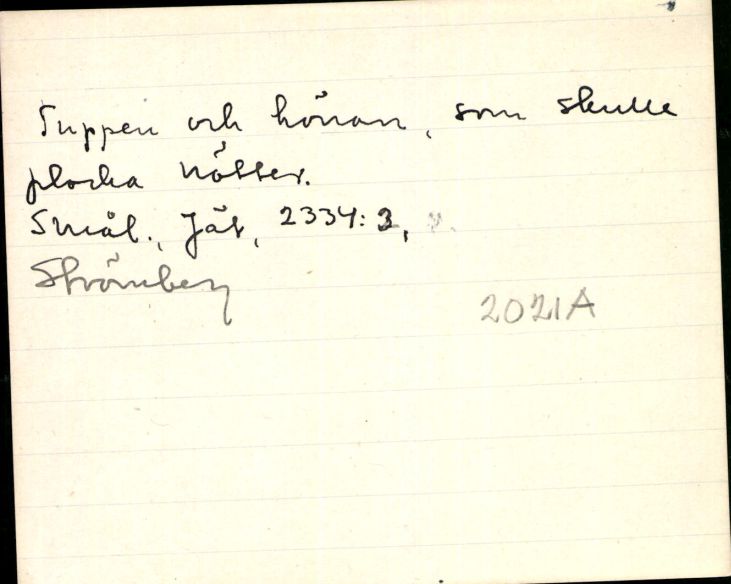 Tuppen och hönan, som skulle
plocka nötter.
Smål., Jät, 2334:3,
Strömberg
2021A